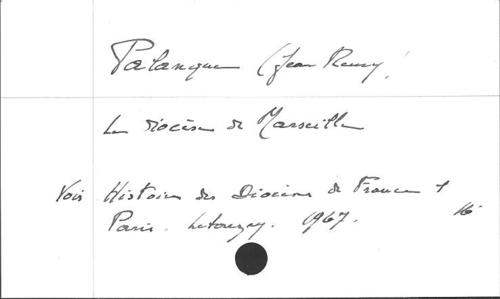 Palanque (Jean Remy)
Le diocèse de Marseille
Voir Histoire des Diocèses de France 1
Paris. Letouzey. 1967. 16